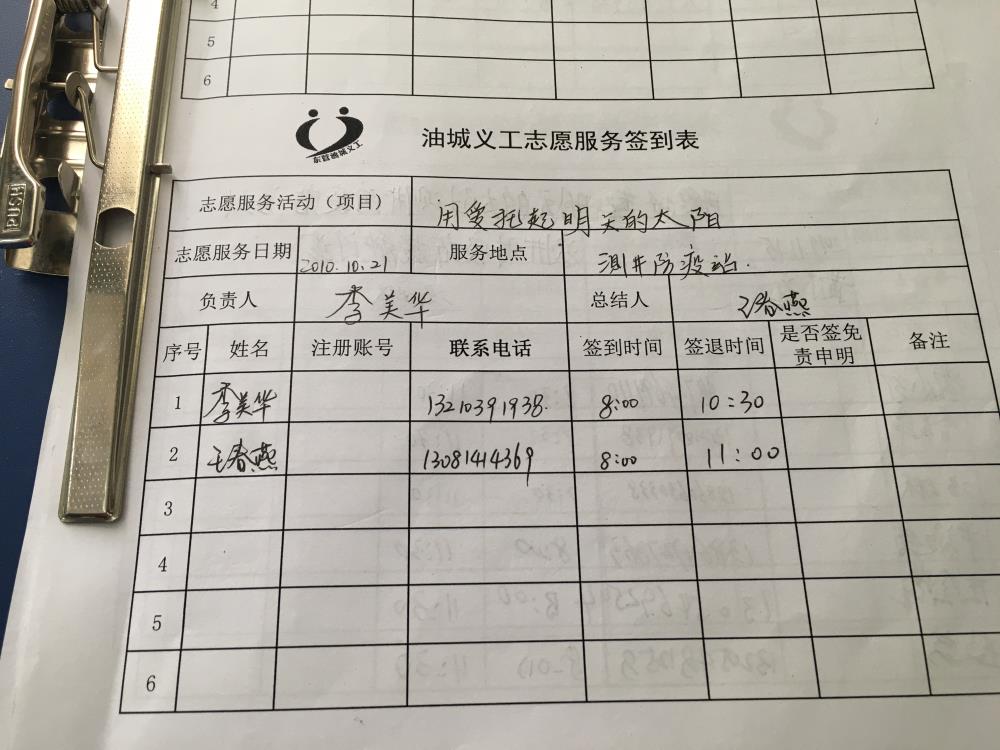 4
5
6
东营油城义工
油城义工志愿服务签到表
志愿服务活动（项目） 用爱托起明天的太阳
志愿服务日期 2010.10.21 服务地点 测井防疫站.
负责人 李美华 总结人 王春燕
序号 姓名 注册账号 联系电话 签到时间 签退时间 是否签免责申明 备注
1 李美华 13210391938. 8:00 10:30
2 王春燕 13081414369 8:00 11:00
3
4
5
6
PUSH